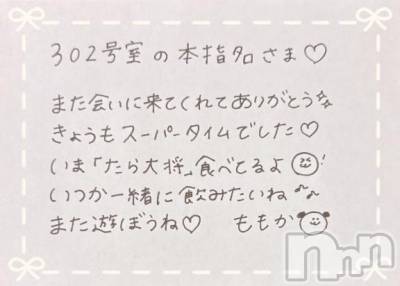 302号室の本指名さま♡
また会いに来てくれてありがとう
きょうもスーパータイムでした♡
いま「たら大将」食べてるよ!
いつか一緒に飲みたいね♪
また遊ぼうね♡ ももか
nmn